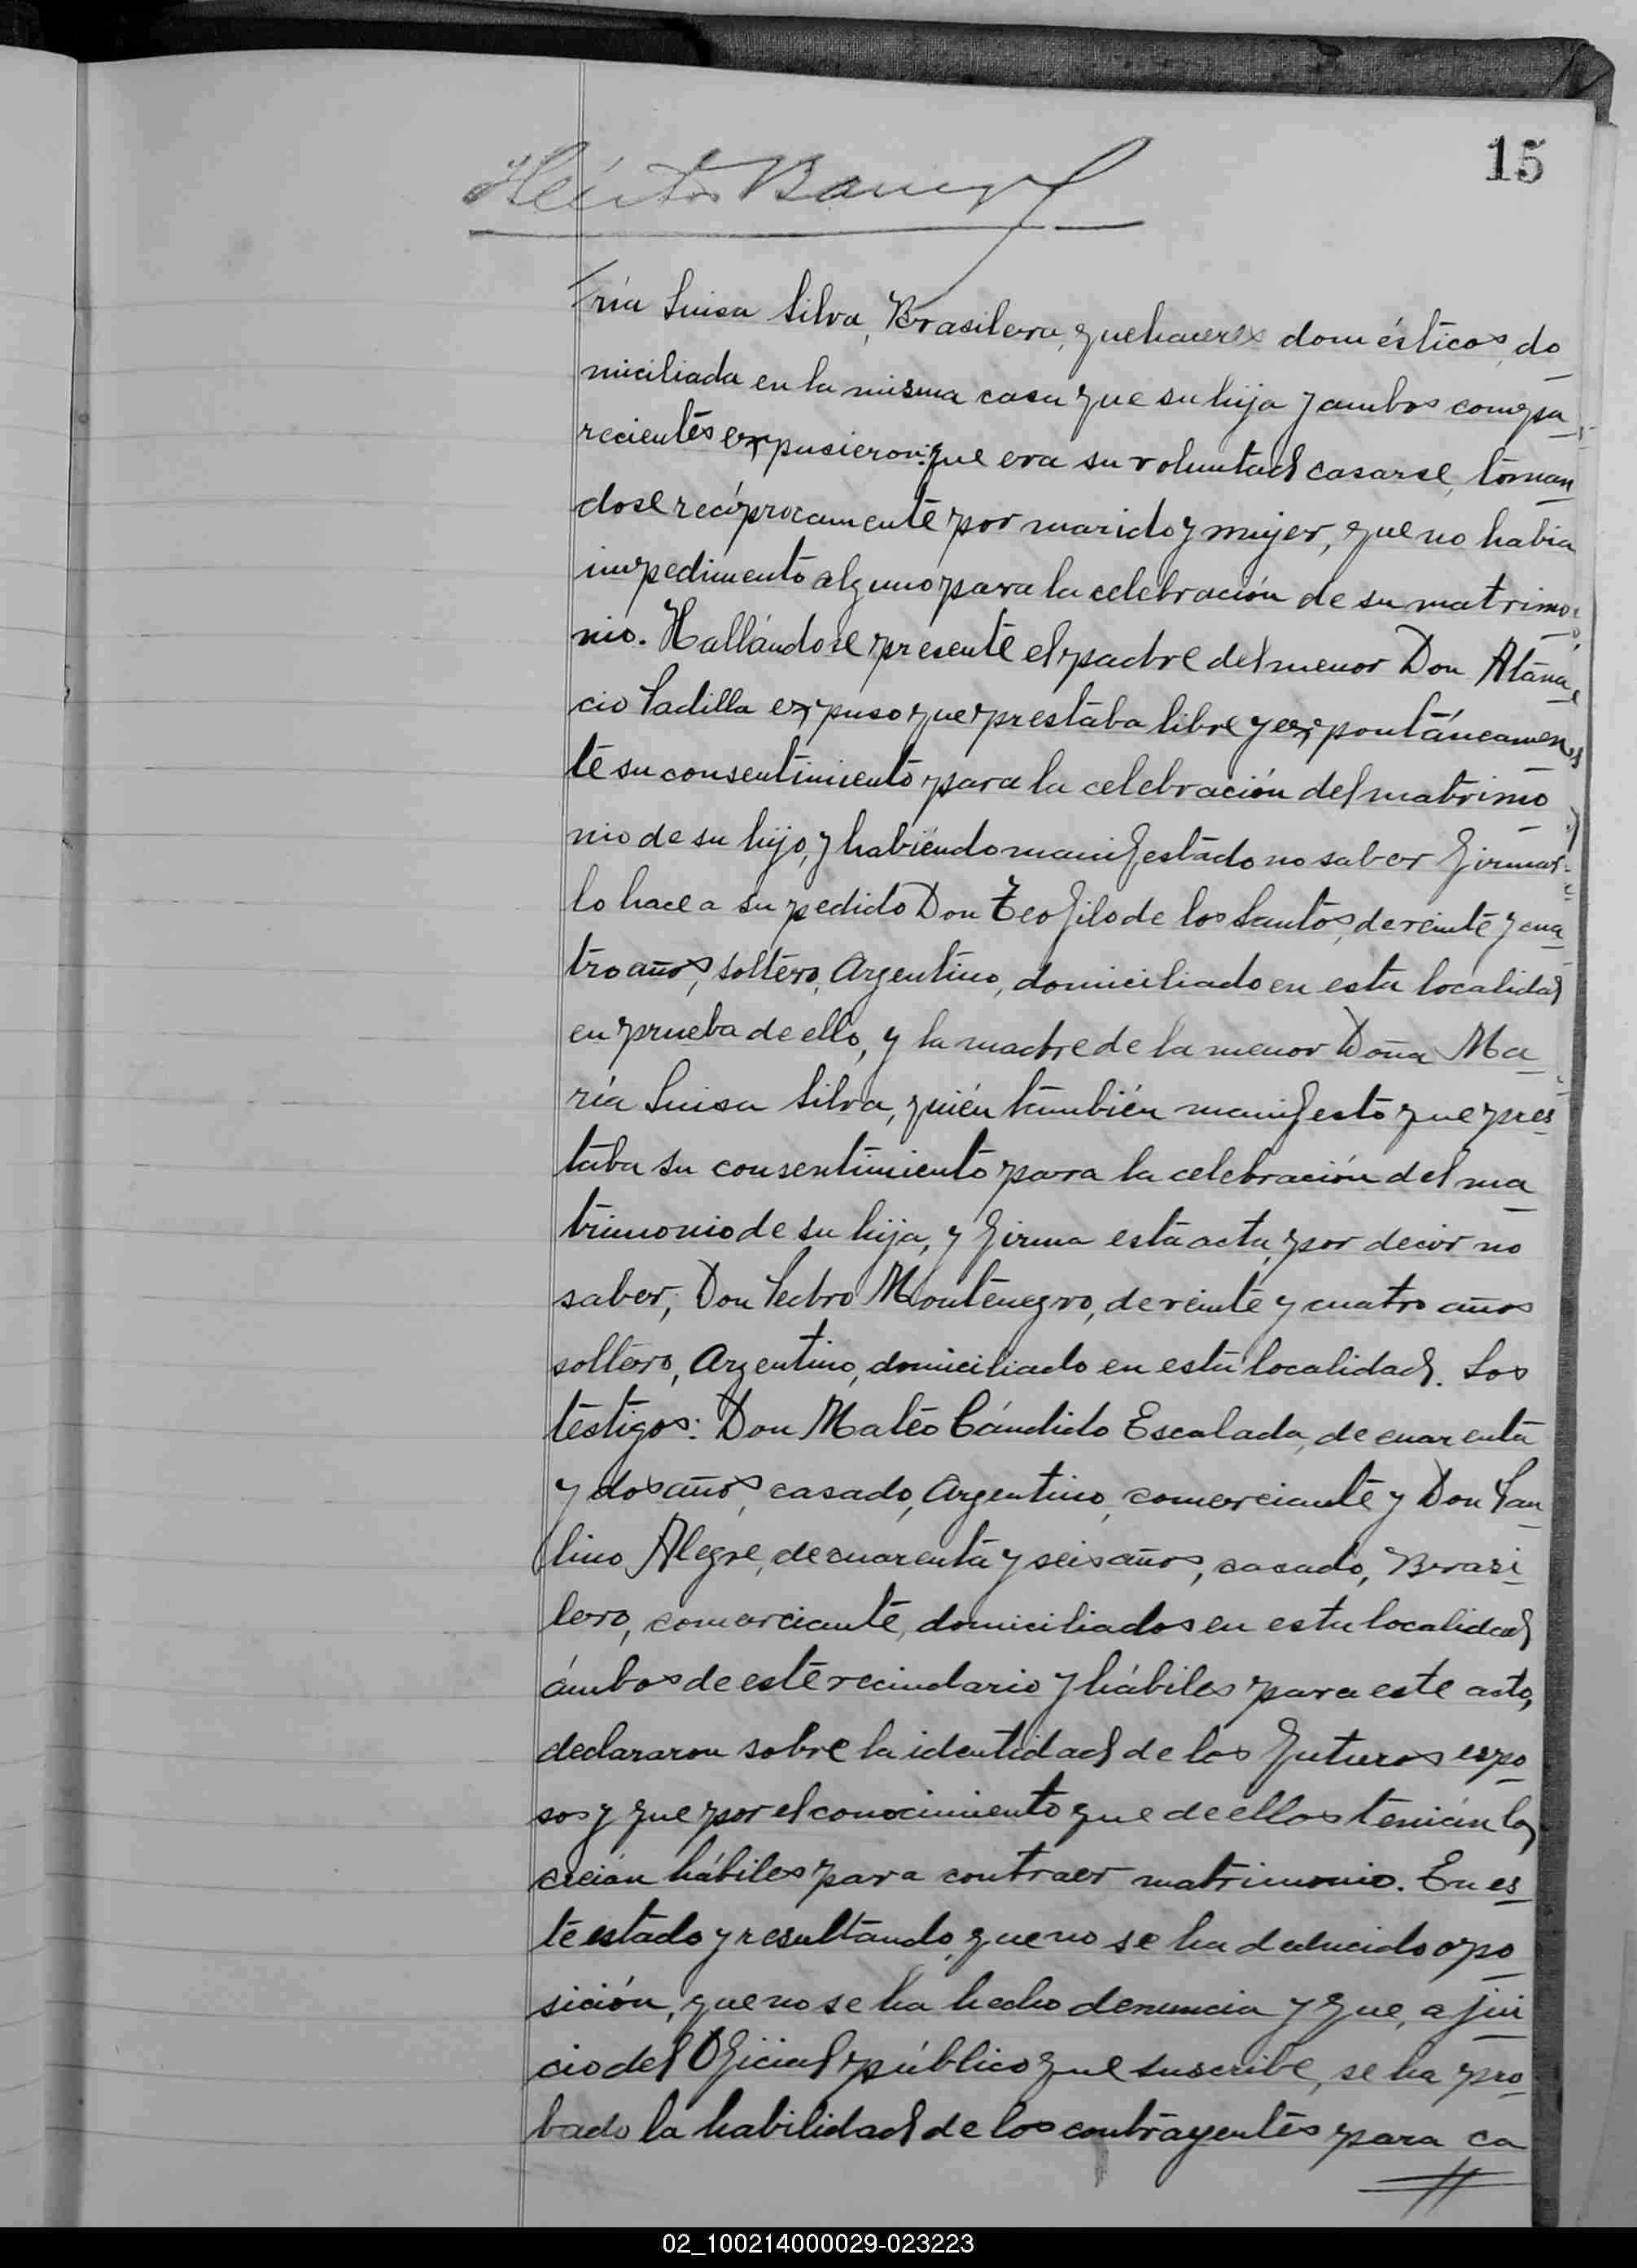 15
Héctor
ría Luisa Silva, Brasilera, quehaceres domésticos, do
miciliada en la misma casa que su hija y ambos compa
recientes expusieron: que era su voluntad casarse, toman
dose recíprocamente por marido y mujer, que no habia
impedimento alguno para la celebración de su matrimo
nio. Hallándose presente el padre del menor Don Atana
cio Padilla expuso que prestaba libre y expontáneamen
te su consentimiento para la celebración del matrimo
nio de su hijo, y habiendo manifestado no saber firmar
lo hace a su pedido Don Teofilo de los Santos, de veinte y cua
tro años, soltero, Argentino, domiciliado en esta localidad
en prueba de ello, y la madre de la menor Doña Ma
ría Luisa Silva, quién también manifesto que pres
taba su consentimiento para la celebración del ma
trimonio de su hija, y firma esta acta, por decir no
saber, Don Pedro Montenegro, de veinte y cuatro años
soltero, Argentino, domiciliado en esta localidad. Los
testigos: Don Mateo Cándido Escalada, de cuarenta
y dos años, casado, Argentino, comerciante y Don Pau
lino Alegre, de cuarenta y seis años, casado, Brasi
lero, comerciante, domiciliados en esta localidad
ámbos de este vecindario y hábiles para este acto,
declararon sobre la identidad de los futuros espo
sos y que por el conocimiento que de ellos tenían los
creían hábiles para contraer matrimonio. En es
te estado y resultando que no se ha deducido opo
sición, que no se ha hecho denuncia y que, a jui
cio del Oficial público que suscribe, se ha pro
bado la habilidad de los contrayentes para ca
02_100214000029-023223